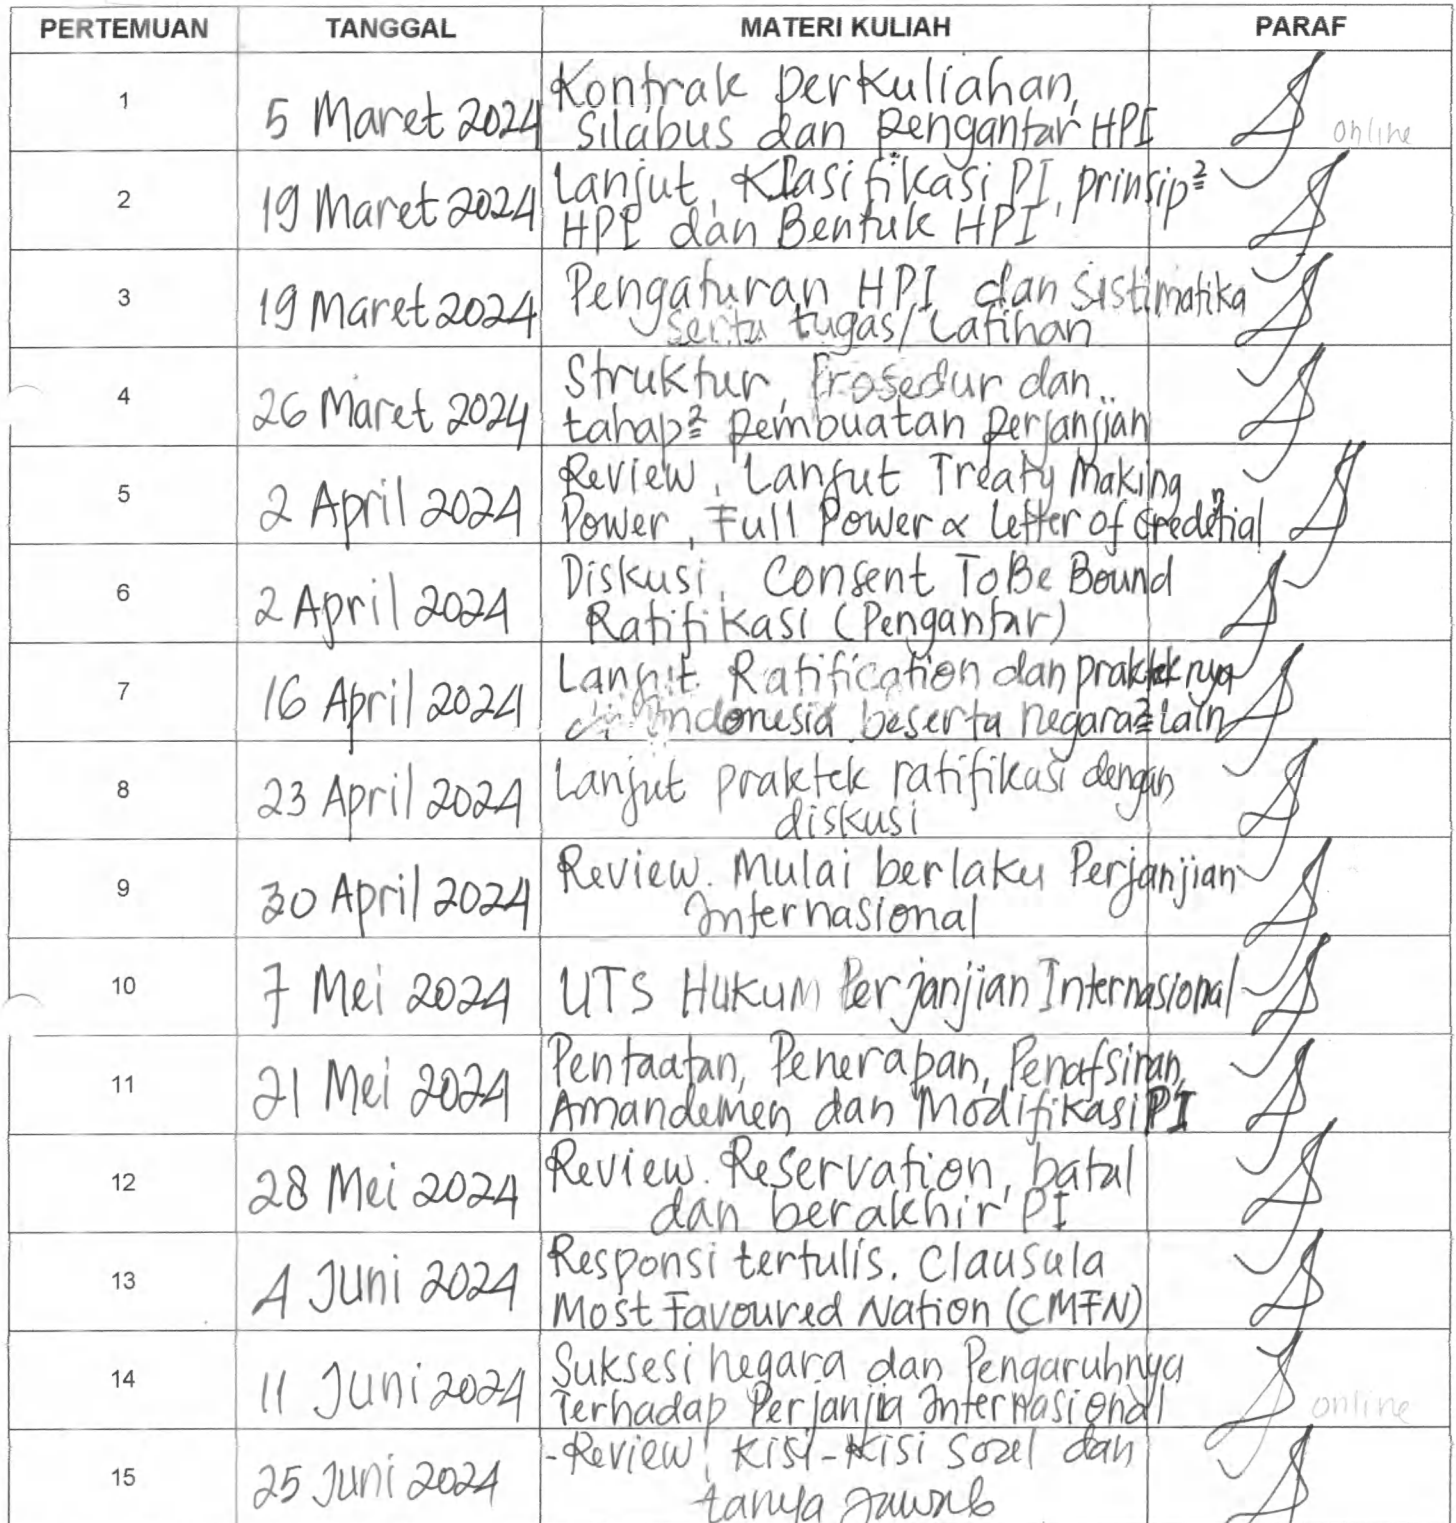 PERTEMUAN TANGGAL MATERI KULIAH PARAF
1 5 Maret 2024 Kontrak perkuliahan,
Silabus dan pengantar HPI online
2 19 Maret 2024 Lanjut, Klasifikasi PI, prinsip²
HPI dan Bentuk HPI
3 19 Maret 2024 Pengaturan HPI dan Sistimatika
serta tugas/Latihan
4 26 Maret 2024 Struktur, Prosedur dan
tahap² pembuatan perjanjian
5 2 April 2024 Review, Lanjut Treaty Making
Power, Full Power & Letter of Credential
6 2 April 2024 Diskusi, Consent To Be Bound
Ratifikasi (Pengantar)
7 16 April 2024 Lanjut Ratification dan prakteknya
di Indonesia beserta negara² lain
8 23 April 2024 Lanjut praktek ratifikasi dengan
diskusi
9 30 April 2024 Review. Mulai berlaku Perjanjian
Internasional
10 7 Mei 2024 UTS Hukum Perjanjian Internasional
11 21 Mei 2024 Pentaatan, Penerapan, Penafsiran,
Amandemen dan Modifikasi PI
12 28 Mei 2024 Review. Reservation, batal
dan berakhir PI
13 4 Juni 2024 Responsi tertulis. Clausula
Most Favoured Nation (CMFN)
14 11 Juni 2024 Suksesi negara dan Pengaruhnya
Terhadap Perjanjia Internasional online
15 25 Juni 2024 -Review, Kisi-Kisi Soal dan
tanya Jawab